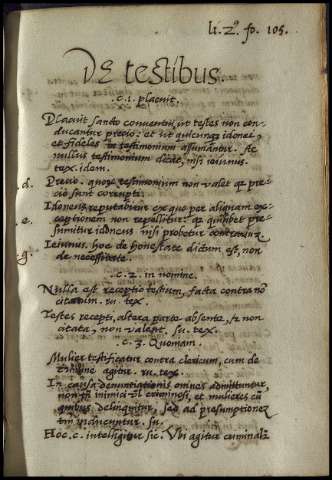 li. 2.° fo. 105.
DE testibus.
.c. 1. placuit.
Placuit sancto conventui, ut testes non con
ducantur precio: et ut quicunque idonei,
et fideles in testimonium assumantur. Ae
nullius testimonium dicat, nisi ieiunus.
tex. idem.
.d. Precio. quare testimonium non valet qr pre-
cio sunt corrupti.
Idoneus reputabitur ex quo per aliquam ex-
.e. ceptionem non repellitur. qr quilibet pre-
sumitur idoneus nisi probetur contrarium.
.g. Ieiunus. hoc de honestate dictum est, non
de necessitate.
.c. 2. in nomine.
Nulla est receptio testium, facta contra nō
citatum. ru. tex.
Testes recepti, altera parte absente, et non
citata, non valent. su. tex.
.c. 3. Quoniam.
Mulier testificatur contra clericum, cum de
crimine agitur. ru. tex.
In causa denuntiationis omnes admittuntur,
non tn inimici vl criminosi, et mulieres cū
quibus delinquitur, sed ad presumptionem
tm inducuntur. su.
Hoc. c. intelligitur sic. Ubi agitur criminalr